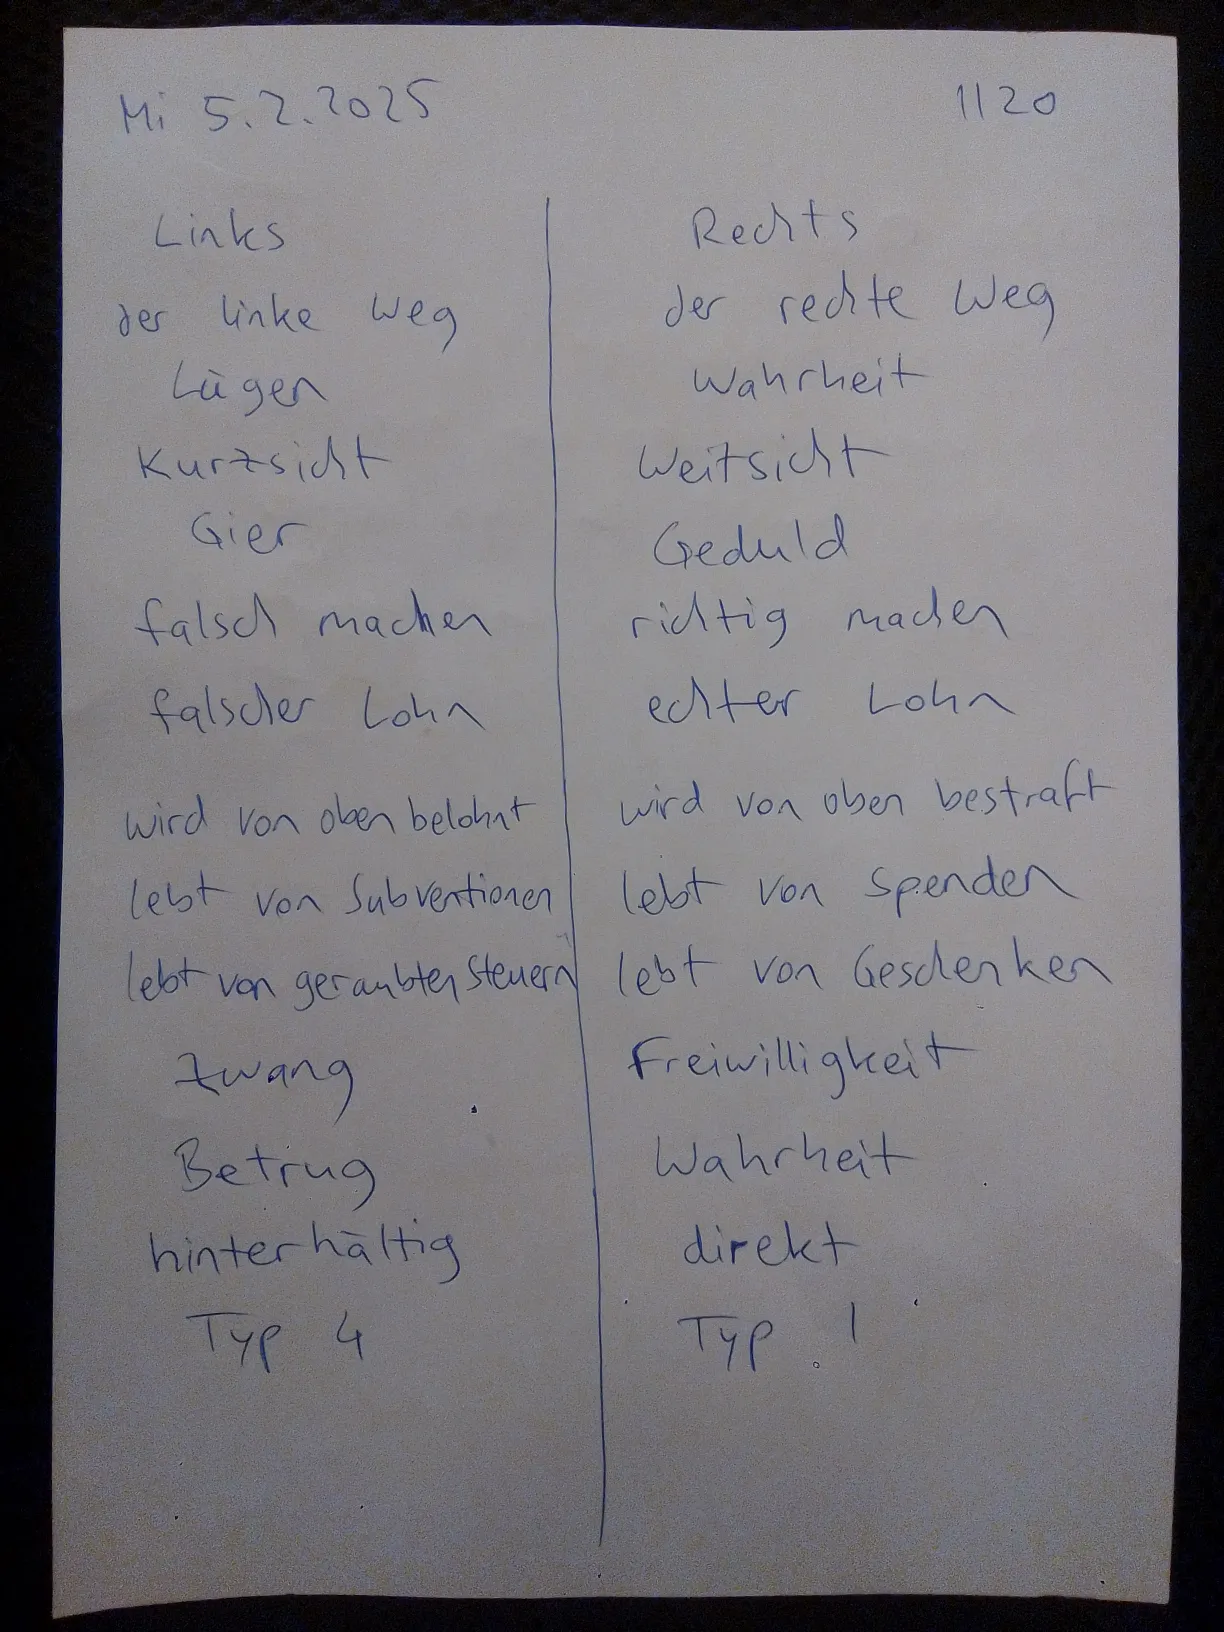 Mi 5.2.2025 1120
Links Rechts
der linke Weg der rechte Weg
Lügen Wahrheit
Kurzsicht Weitsicht
Gier Geduld
falsch machen richtig machen
falscher Lohn echter Lohn
wird von oben belohnt wird von oben bestraft
lebt von Subventionen lebt von Spenden
lebt von geraubten Steuern lebt von Geschenken
Zwang Freiwilligkeit
Betrug Wahrheit
hinterhältig direkt
Typ 4 Typ 1